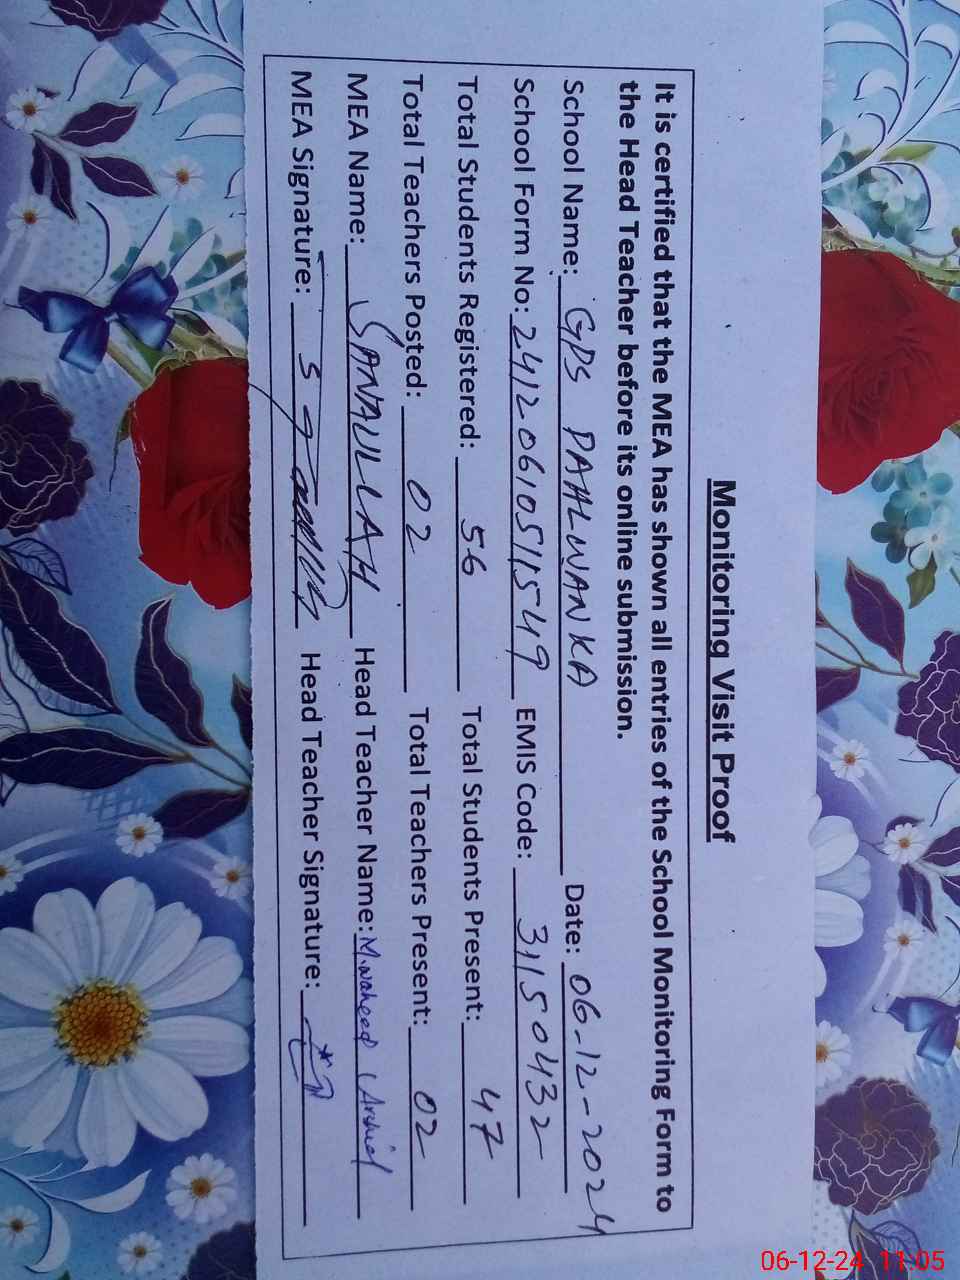 Monitoring Visit Proof
It is certified that the MEA has shown all entries of the School Monitoring Form to
the Head Teacher before its online submission.
School Name: GPS PAHLWANKA Date: 06-12-2024
School Form No: 24120610511549 EMIS Code: 31150432
Total Students Registered: 56 Total Students Present: 47
Total Teachers Posted: 02 Total Teachers Present: 02
MEA Name: SANAULLAH Head Teacher Name: M.waheed Arshad
MEA Signature: Head Teacher Signature:
06-12-24 11:05